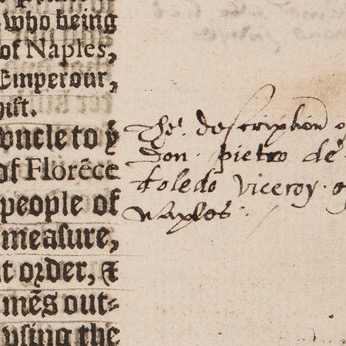 who being
of Naples,
Emperour,
hist.
vncle to yͤ
of Florēce
people of
measure,
t order, &
mēs out-
vsing the
The description o
Don pietro de
toledo viceroy o
Naples